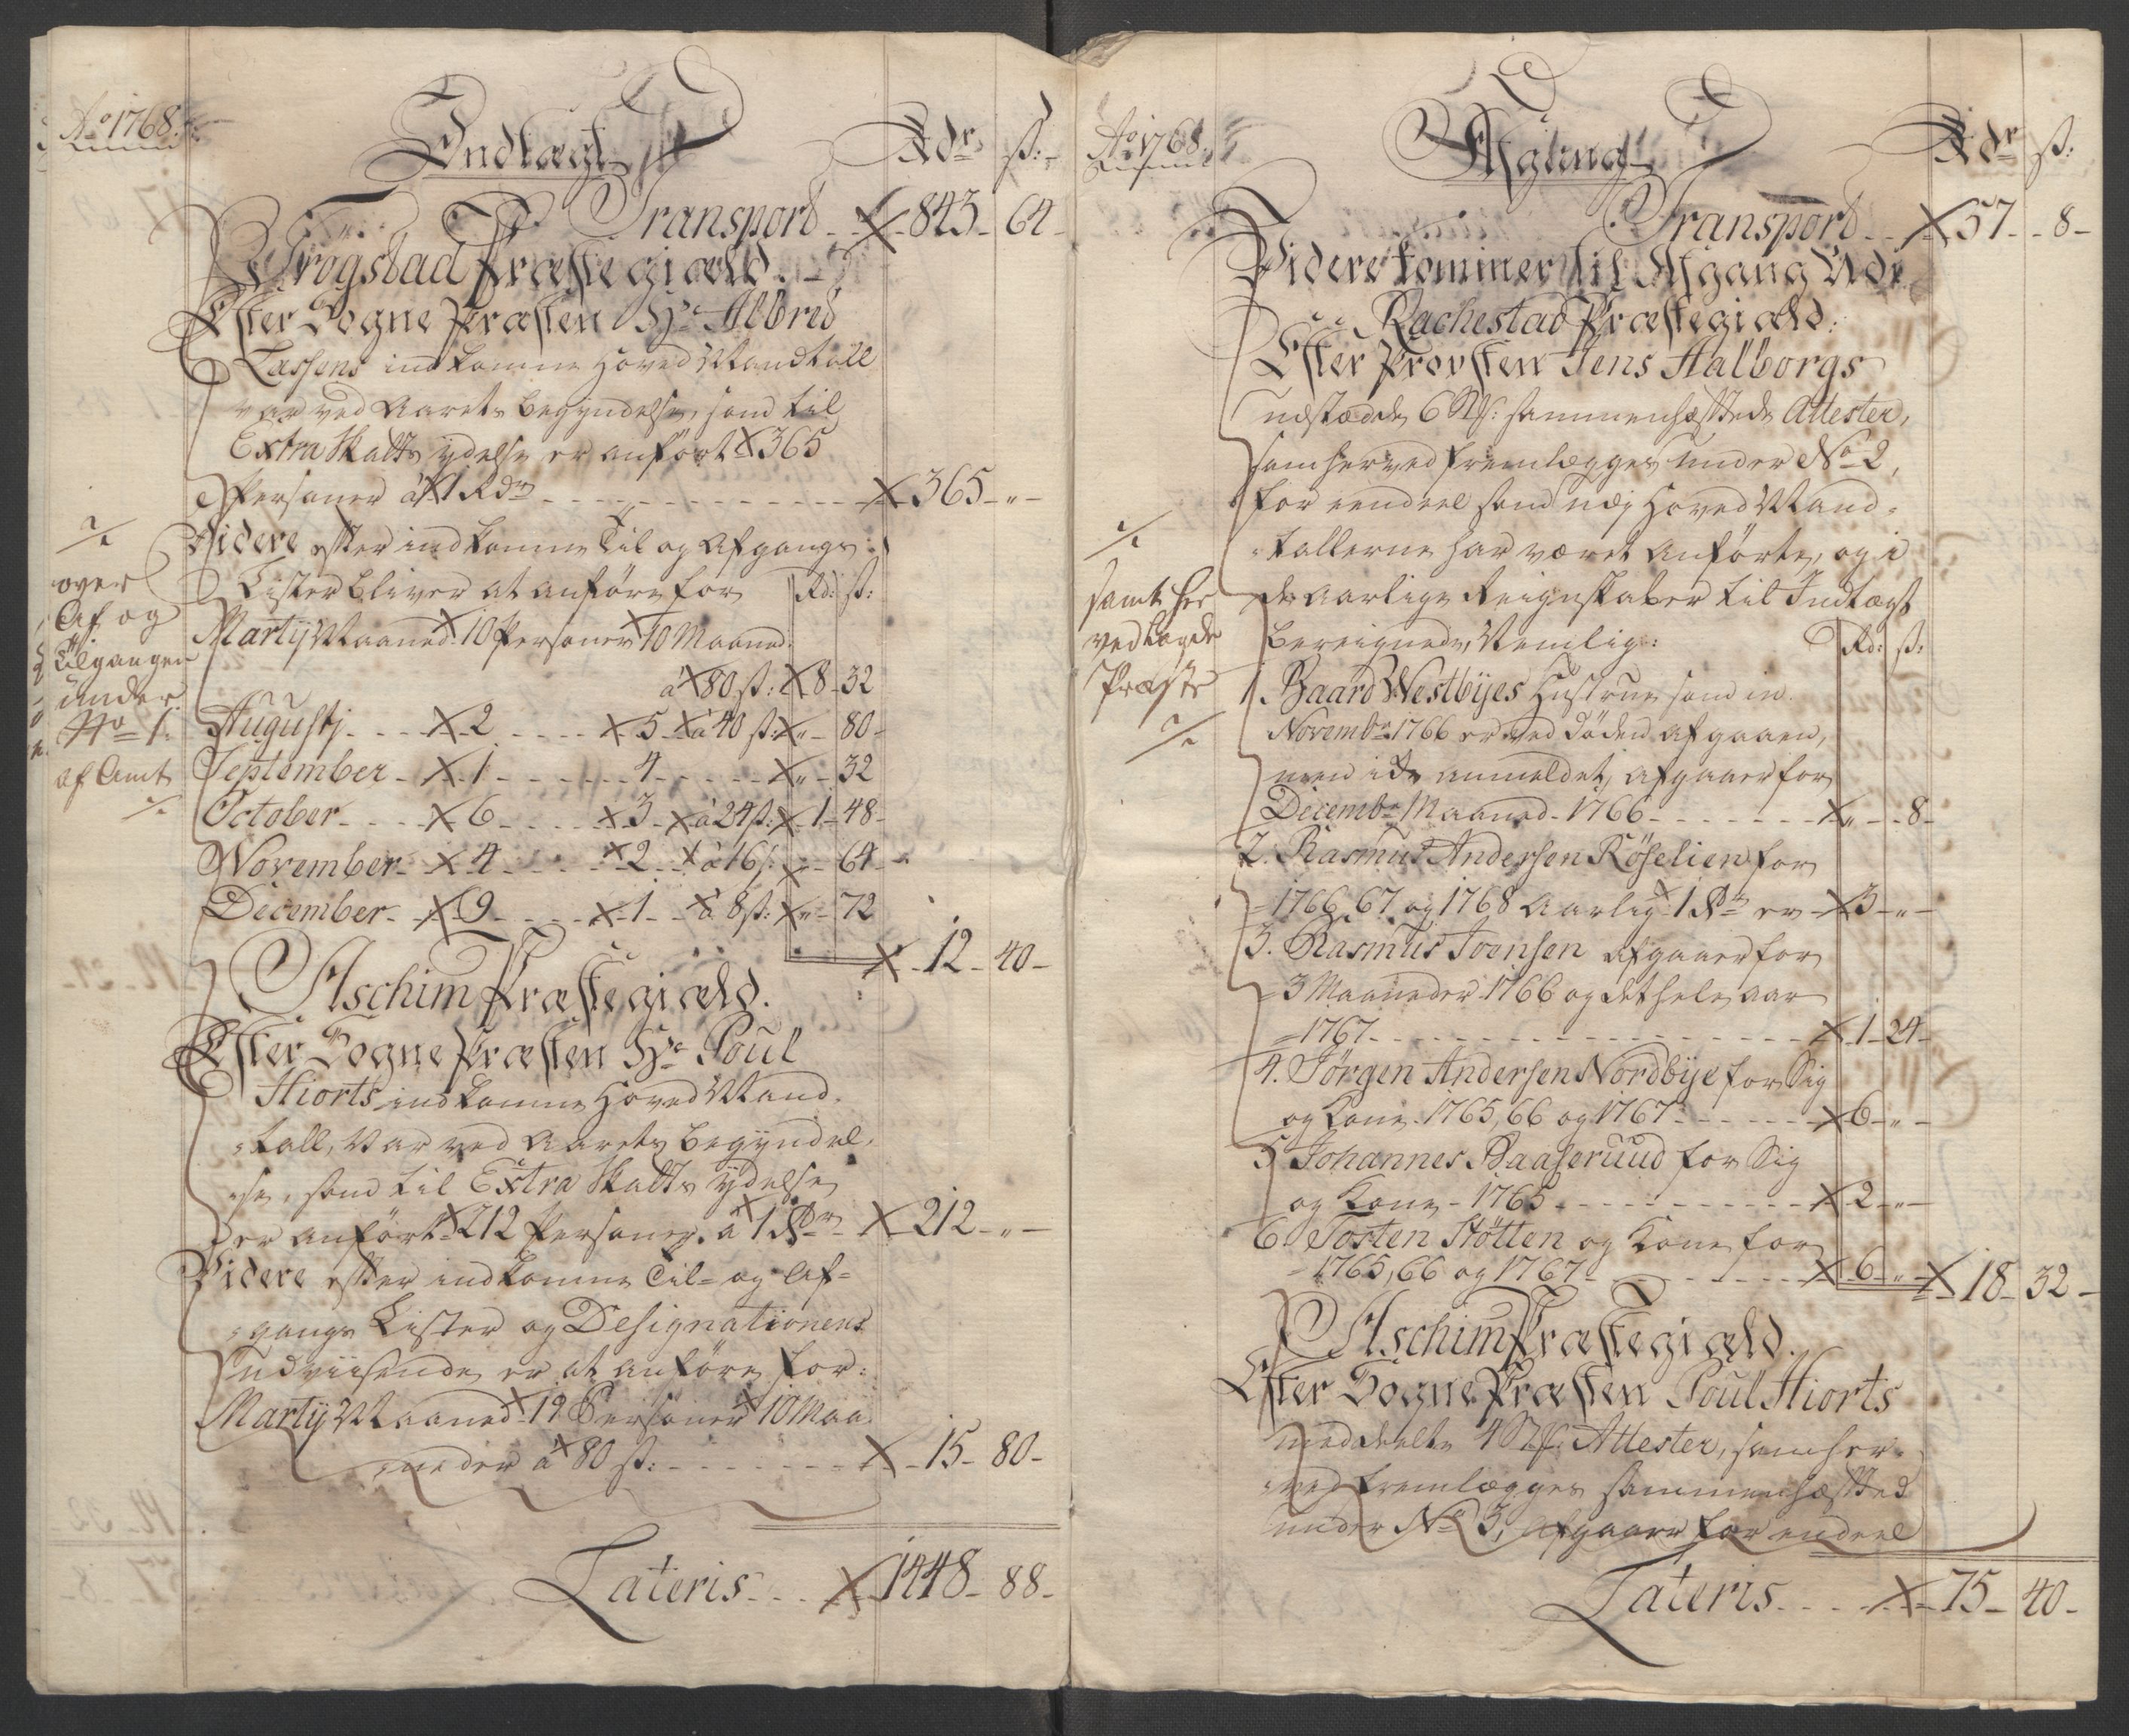 Ao 1768.
Indtægt
Rdr ß:
Transport X 843 64
Trögstad Præstegiæld.
Efter Sogne Præsten Hr Albred
Lassens indkomne Hoved Mandtall
var ved Aarets begyndelse, som til
Extra Skatts ydelse er anført X 365
Personer á X 1 Rdr X 365 "
Videre efter indkomne Til og Afgangs
Lister bliver at anføre for Rd: ß:
Martij Maaned X 10 Personer X 10 Maaned:
á X 80 ß: X 8 32
Augustj X 2 X 5 X á 40 ß: X " 80
September X 1 4 X " 32
October X 6 X 3 X á 24 ß: X 1 48
November X 4 X 2 X á 16 ß: X " 64
December X 9 X 1 X á 8 ß: X " 72
X 12 40
over
Af og
Tilgangen
under
No 1.
af Amt
Aschim Præstegiæld.
Efter Sogne Præsten Hr Poul
Hiorts indkomne Hoved Mand-
tall, var ved Aarets Begyndel-
se, som til Extra Skatts ydelse
er anført X 212 Personer á X 1 Rdr X 212 "
Videre efter indkomne Til- og Af-
gangs Lister og Designationens
udviisende er at anføre for:
Martij Maaned X 19 Personer X 10 Maa
neder á X 80 ß: X 15 80
Lateris X 1448 88
Ao 1768.
Afgang
Rdr ß:
Transport X 57 8
Videre kommer til Afgang Udi
Rachestad Præstegiæld:
Efter Provsten Jens Aalborgs
udstædede 6 St: sammenhæftede Attester,
som herved fremlægges under No 2,
for eendeel som udj Hoved Mand-
tallerne har været anførte, og i
de aarlige Reignskaber til Indtægt
bereignede, Nemlig: Rd: ß:
samt her
vedlagde
1. Baard Westbyes Hustrue som in
Novembr 1766 er ved Døden afgaaen,
men ide anmeldet, afgaaer for
Decembr Maaned 1766 X " 8
2. Rasmus Andersen Röselien for
1766, 67 og 1768 Aarlig X 1 Rdr er X 3 "
3. Rasmus Joensen afgaaer for
3 Maaneder 1766 og det hele aar
1767 X 1 24
4. Jörgen Andersen Nordbye for Sig
og Kone 1765, 66 og 1767 X 6 "
5 Johannes Baaseruud for Sig
og Kone 1765 X 2 "
6. Torsten Stötten og Kone for
1765, 66 og 1767 X 6 " X 18 32
Aschim Præstegiæld.
Efter Sogne Præsten Poul Hiorts
meddeelte 4 St: Attester, som her-
ved fremlægges sammenhæfted
under No 3, afgaaer for endeel
Lateris X 75 40